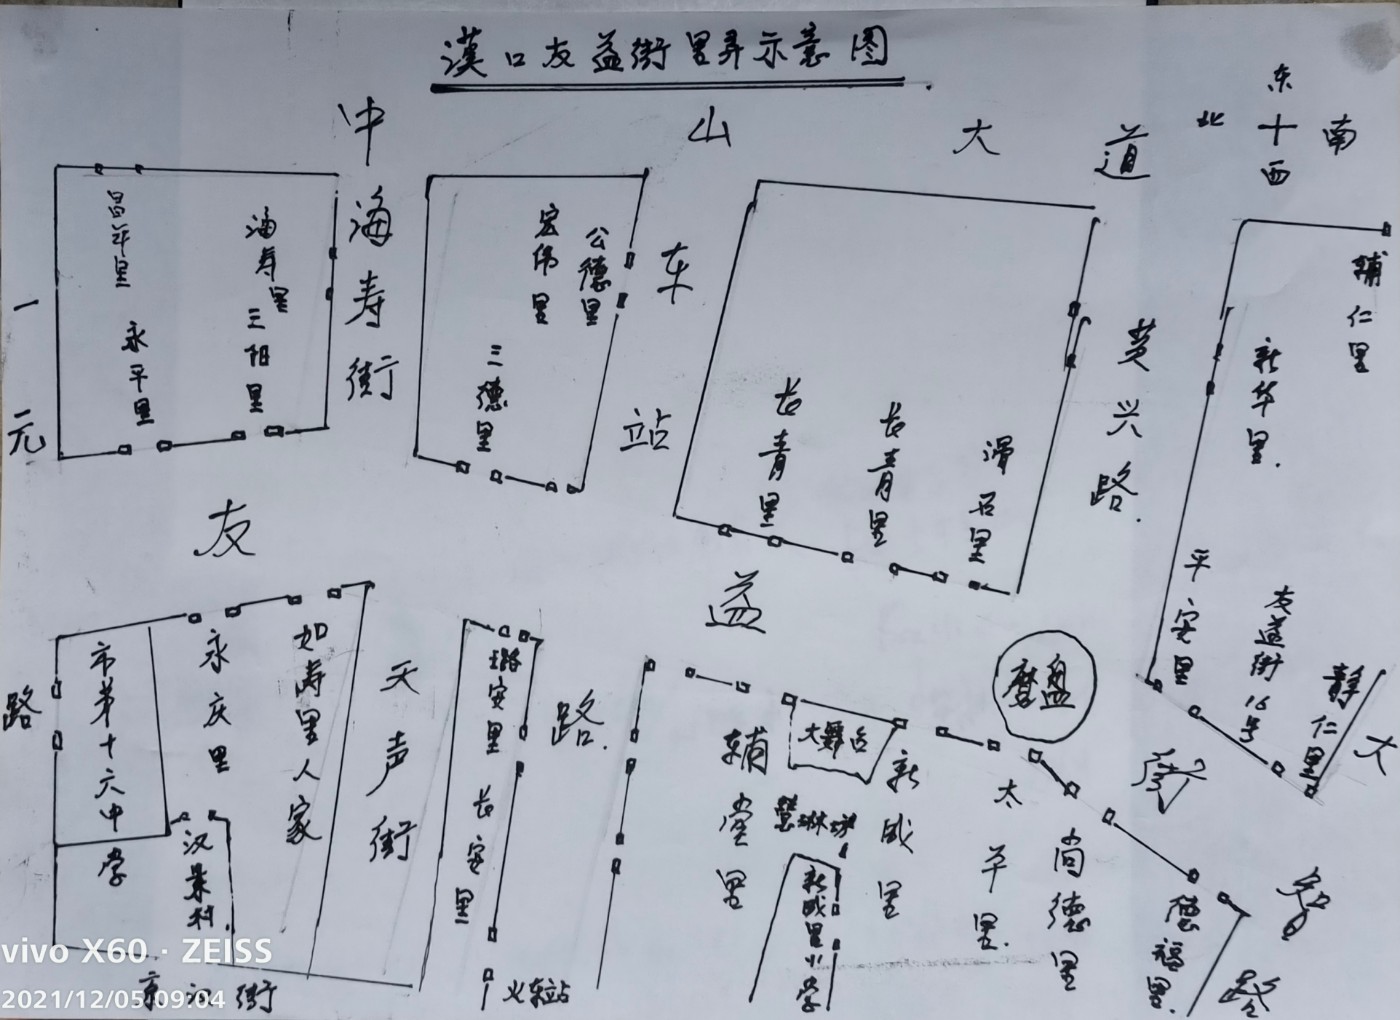 漢口友益街里弄示意图
中山大道
东
北 南
西
一元路
昌年里
永平里
海寿里
三阳里
海寿街
宏伟里
公德里
三德里
车站路.
长青里
长青里
滑石里
黄兴路.
新华里.
辅仁里
平安里
友益街16号
静仁里
友益街
大智路
市第十六中学
永庆里
汉景村.
如寿里人家
天声街
璐安里
长安里
火车站
京汉街
辅堂里
大舞台
慧琳坊
新成里
新成里小学
磨盘
太平里.
尚德里
德福里.
vivo X60 · ZEISS
2021/12/05 09:04